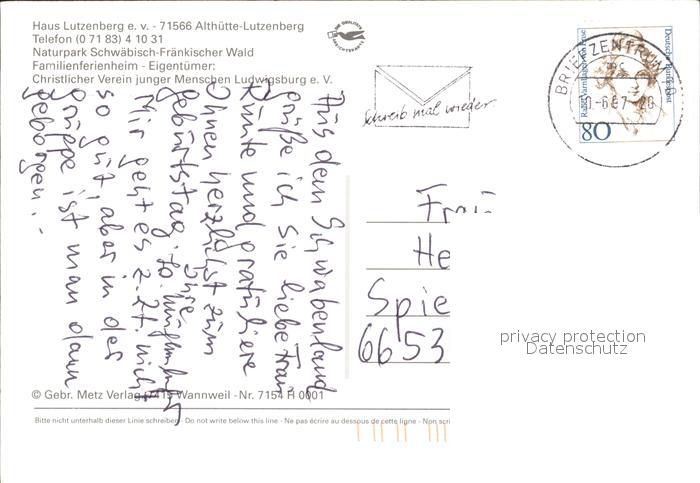 Haus Lutzenberg e. v. - 71566 Althütte-Lutzenberg
Telefon (0 71 83) 4 10 31
Naturpark Schwäbisch-Fränkischer Wald
Familienferienheim - Eigentümer:
Christlicher Verein junger Menschen Ludwigsburg e. V.
DIE QUALITÄTS
ANSICHTSKARTE
Schreib mal wieder
BRIEFZENTRUM
Rahel Varnhagen von Ense
Deutsche Bundespost
80
Aus dem Schwabenland
grüße ich Sie liebe Frau
und gratuliere
Ihnen herzlichst zum
Geburtstag.
Ihre
Mir geht es z. Zt. nicht
so gut, aber in der
Gruppe ist man dann
geborgen. -
He
Spie
6653
privacy protection
Datenschutz
© Gebr. Metz Verlag 7415 Wannweil - Nr. 7154 H 0001
Bitte nicht unterhalb dieser Linie schreiben - Do not write below this line - Ne pas écrire au dessous de cette ligne - Non scri